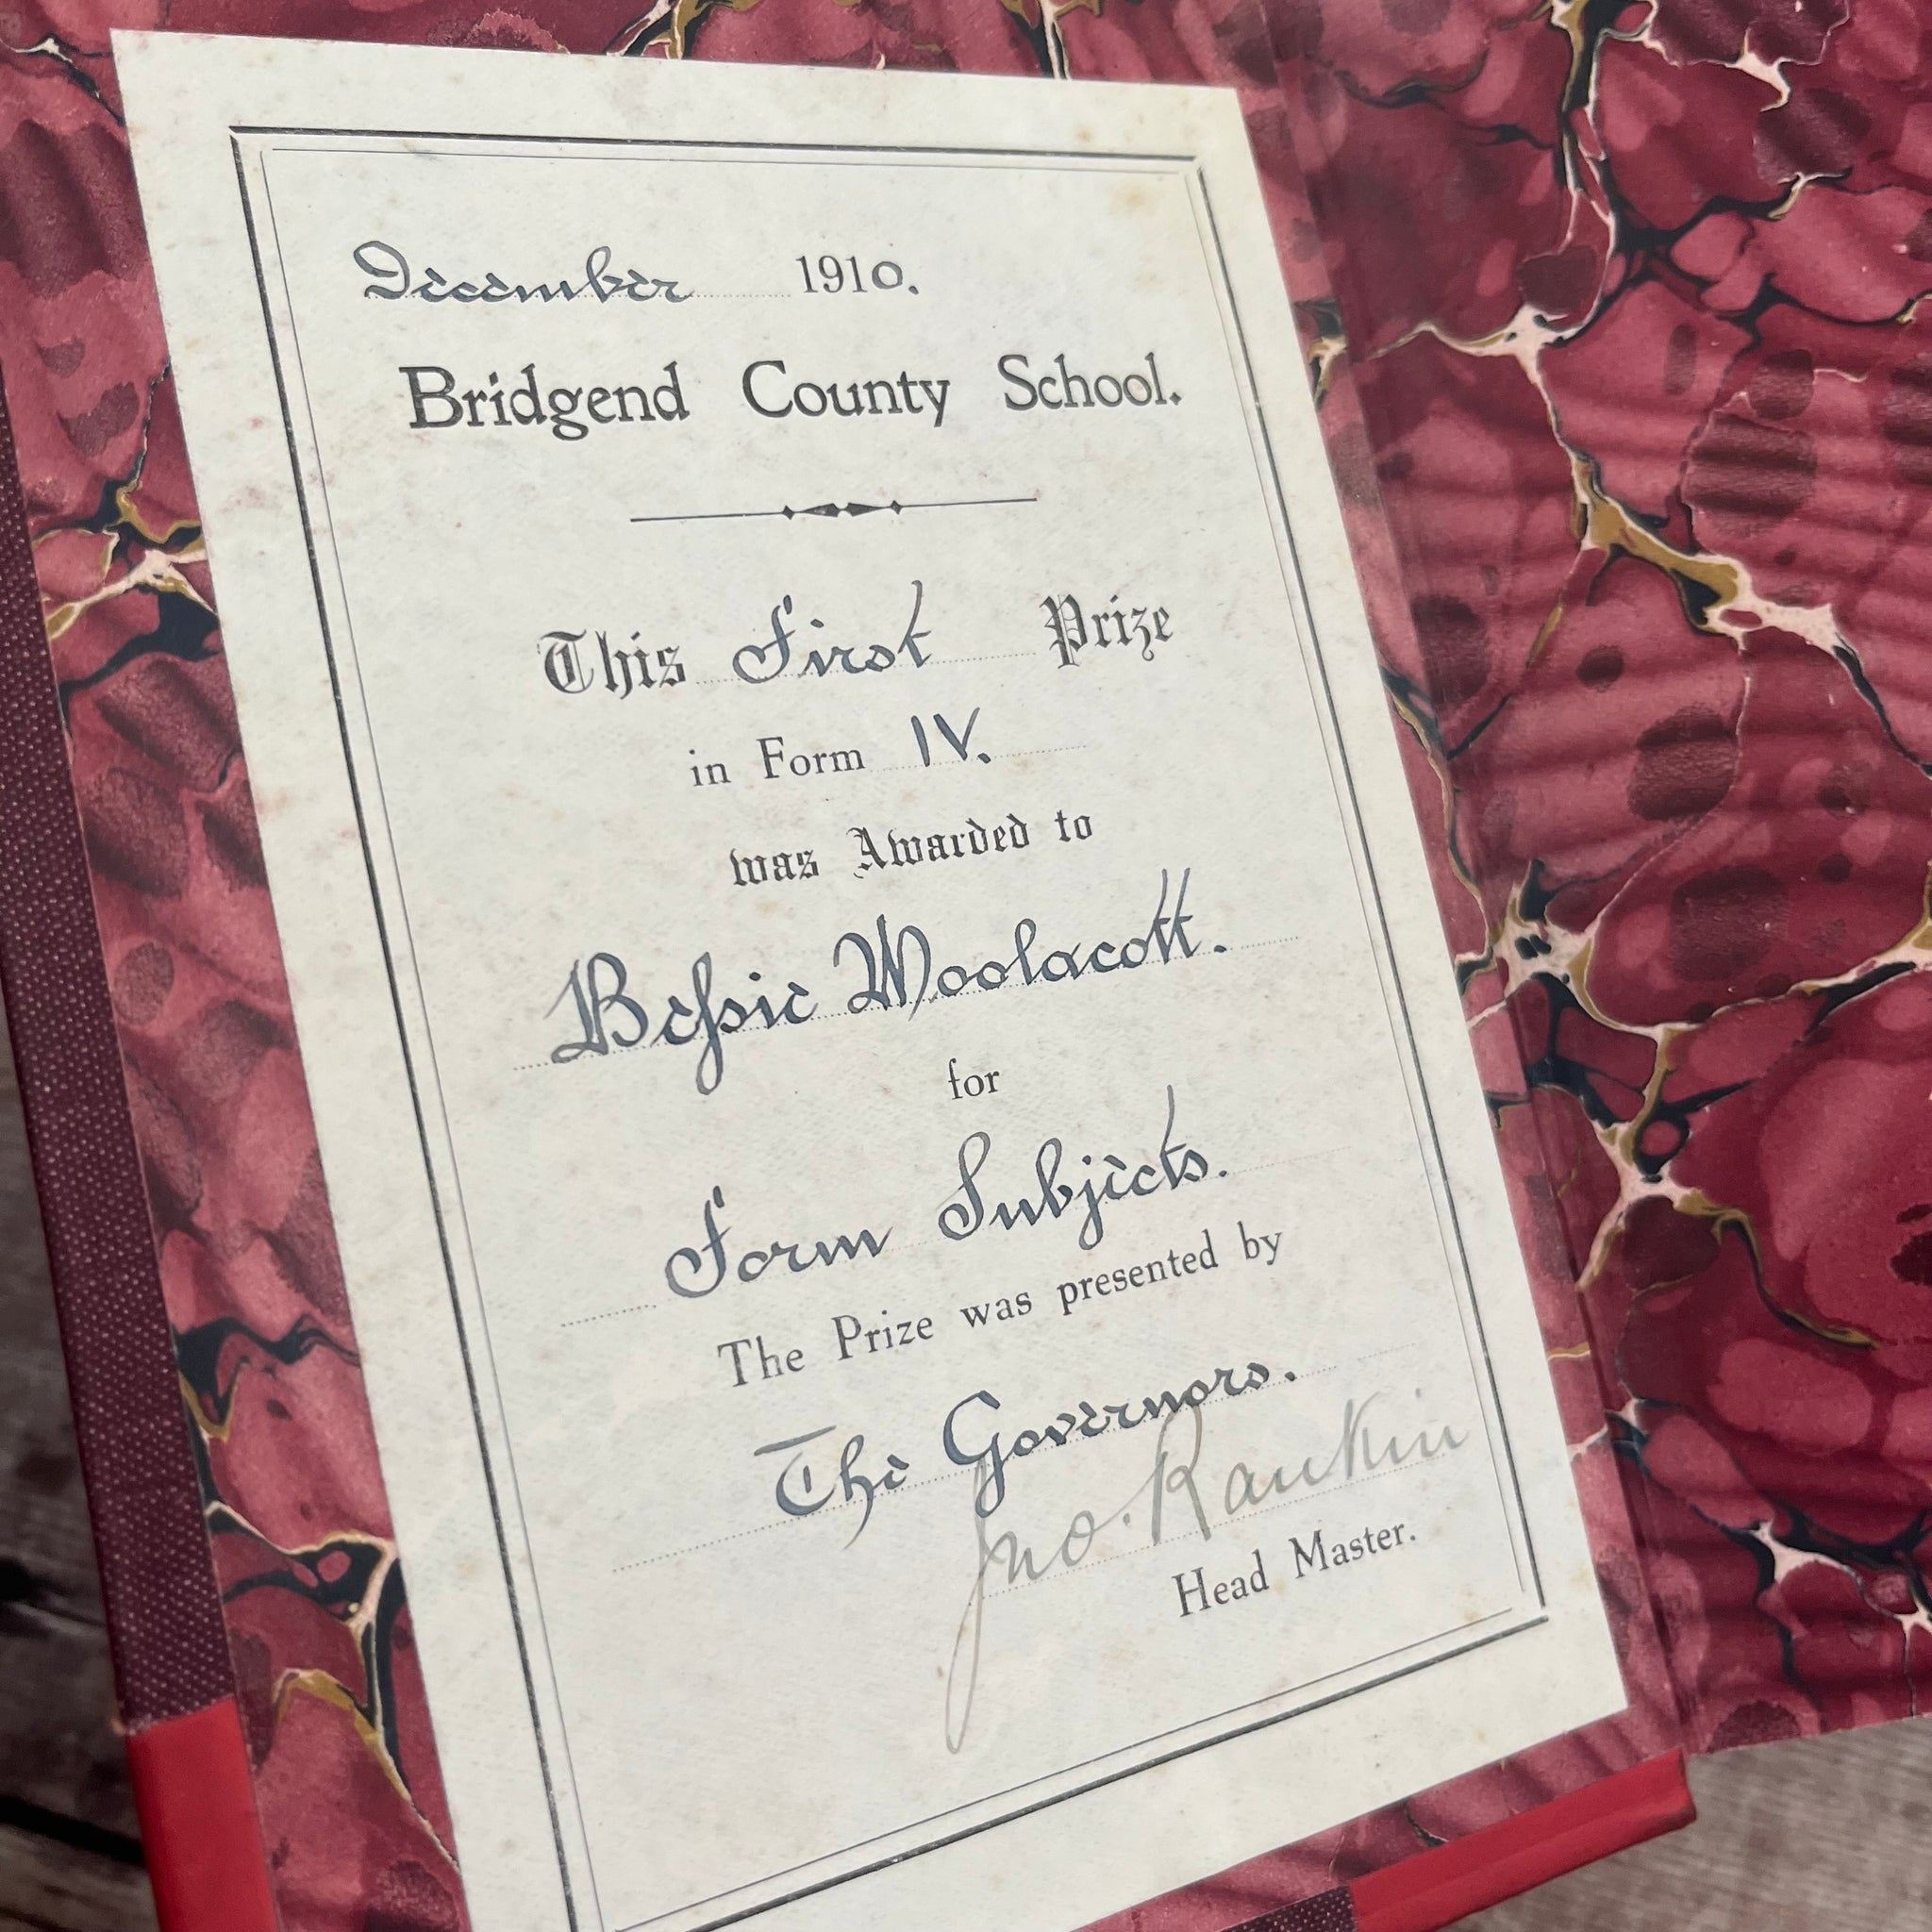 December 1910.
Bridgend County School.
This First Prize
in Form IV.
was Awarded to
Bessie Woolacott.
for
Form Subjects.
The Prize was presented by
The Governors.
Jno. Rankin
Head Master.